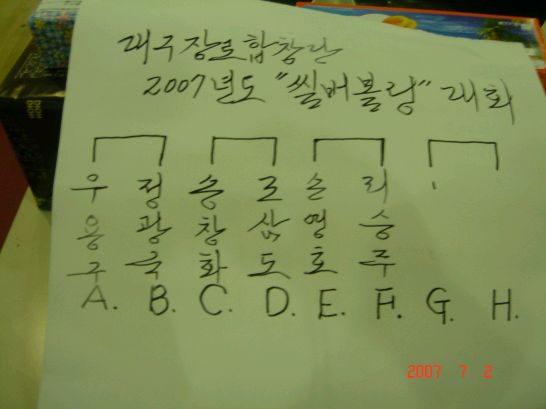 대구장로합창단
2007년도 "씰버볼링" 대회
우 정 송 조 손 리
용 광 창 삼 영 승
구 욱 화 도 호 주
A. B. C. D. E. F. G. H.
2007 7 2